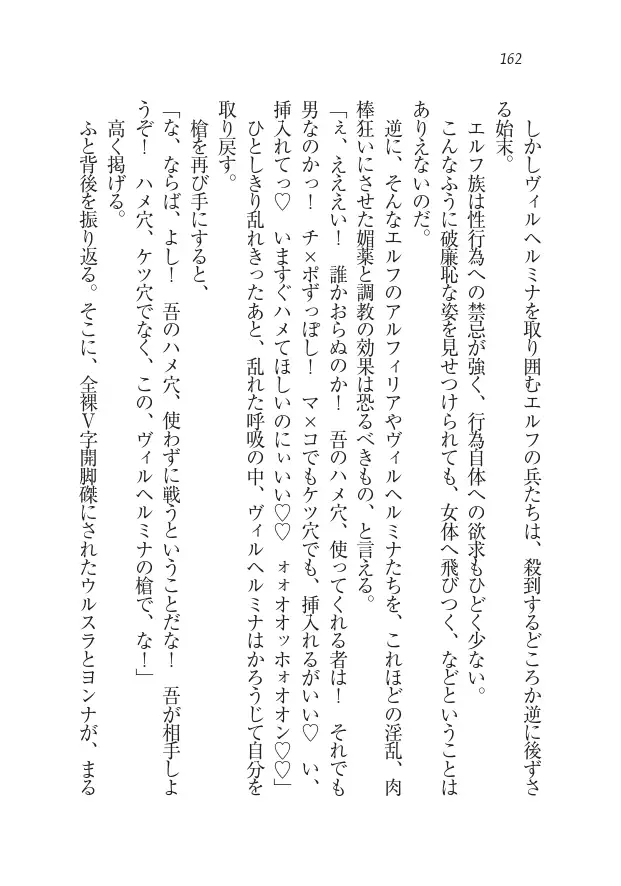 162
しかしヴィルヘルミナを取り囲むエルフの兵たちは、殺到するどころか逆に後ずさ
る始末。
エルフ族は性行為への禁忌が強く、行為自体への欲求もひどく少ない。
こんなふうに破廉恥な姿を見せつけられても、女体へ飛びつく、などということは
ありえないのだ。
逆に、そんなエルフのアルフィリアやヴィルヘルミナたちを、これほどの淫乱、肉
棒狂いにさせた媚薬と調教の効果は恐るべきもの、と言える。
「ぇ、えええい！　誰かおらぬのか！　吾のハメ穴、使ってくれる者は！　それでも
男なのかっ！　チ×ポずっぽし！　マ×コでもケツ穴でも、挿入れるがいい♡　い、
挿入れてっ♡　いますぐハメてほしいのにぃいい♡♡　ォォオオッホォオオン♡♡」
ひとしきり乱れきったあと、乱れた呼吸の中、ヴィルヘルミナはかろうじて自分を
取り戻す。
槍を再び手にすると、
「な、ならば、よし！　吾のハメ穴、使わずに戦うということだな！　吾が相手しよ
うぞ！　ハメ穴、ケツ穴でなく、この、ヴィルヘルミナの槍で、な！」
高く掲げる。
ふと背後を振り返る。そこに、全裸Ｖ字開脚磔にされたウルスラとヨンナが、まる